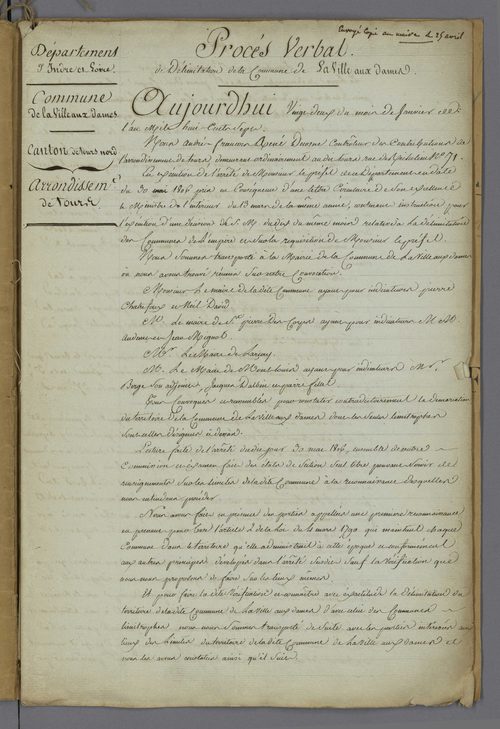 Envoyé Copie au maire le 25 avril
Département
d'Indre et Loire.
Commune
de la Ville aux dames
Canton de tours nord
Arrondissemt
de Tours
Procés Verbal.
de Délimitation de la Commune de La Ville aux dames.
Aujourdhui Vingt deux du mois de Janvier
l'an Mil huit Cent Sept.
Nous andré francois René Contrôleur des Contributions de
l'arrondissement de tours demeurant ordinairement au dit tours rue des No. 71.
En exécution de l'arrêté de Monsieur le préfet de ce département en date
du 30 mai 1806 pris en Conséquence d'une lettre Circulaire de Son excellence
le Ministre de l'interieur du 13 mars de la même année, portant instruction pour
l'exécution d'une décision de S. M. du dix du même mois relative à la délimitation
des Communes de l'empire et sur la requisition de Monsieur le préfet.
Nous Sommes transporté à la Mairie de la Commune de la Ville aux dames
où nous avons trouvé réunis sur notre Convocation.
Monsieur le maire de la dite Commune ayant pour indicateurs pierre
et Noël David.
Mr. Le maire de St. pierre des Corps ayant pour indicateurs M. M.
et Jean Mignot.
Mr. Le Maire de Larçay.
M. Le Maire de Montlouis ayant pour indicateurs Mr.
Son adjoint, Jacques et pierre
Tous Convoqués et rassemblés pour constater contradictoirement la démarcation
du territoire de la Commune de la Ville aux dames dont les Seules limitrophes
Sont celles désignées ci devant.
Lecture faite de l'arrêté du dit jour 30 mai 1806, ensemble de notre
Commission et examen fait des états de Section Seul titre pouvant fournir des
renseignements Sur les limites de la dite Commune à la reconnaissance desquelles
nous entendons procéder
Nous avons fait en présence des parties appellées une première reconnaissance
en prenant pour base l'article 2 de la loi du 4 mars 1790 qui maintient chaque
Commune dans le territoire qu'elle administrait à cette époque et conformément
aux autres principes développés dans l'arrêté Susdit Sauf la Vérification que
nous nous proposons de faire Sur les lieux mêmes.
Et pour faire la dite Vérification et connaître avec exactitude la Délimitation du
territoire de la dite Commune de la Ville aux dames d'avec celui des Communes
limitrophes nous nous Sommes transporté de Suite avec les parties interessées aux
lieux des limites du territoire de la dite Commune de la Ville aux dames et
nous les avons constatées ainsi qu'il Suit.